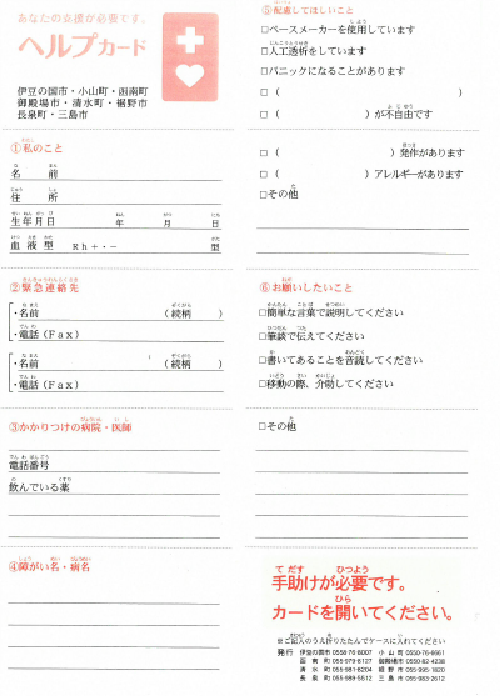 あなたの支援が必要です。
ヘルプカード
伊豆の国市・小山町・函南町
御殿場市・清水町・裾野市
長泉町・三島市
①私のこと
名前
住所
生年月日 年 月 日
血液型 Rh+・- 型
②緊急連絡先
・名前 (続柄 )
・電話(Fax)
・名前 (続柄 )
・電話(Fax)
③かかりつけの病院・医師
電話番号
飲んでいる薬
④障がい名・病名
⑤配慮してほしいこと
□ペースメーカーを使用しています
□人工透析をしています
□パニックになることがあります
□( )
□( )が不自由です
□( )発作があります
□( )アレルギーがあります
□その他
⑥お願いしたいこと
□簡単な言葉で説明してください
□筆談で伝えてください
□書いてあることを音読してください
□移動の際、介助してください
□その他
手助けが必要です。
カードを開いてください。
※ご記入のうえ折りたたんでケースに入れてください
発行 伊豆の国市 小山町
函南町 御殿場市
清水町 裾野市
長泉町 三島市